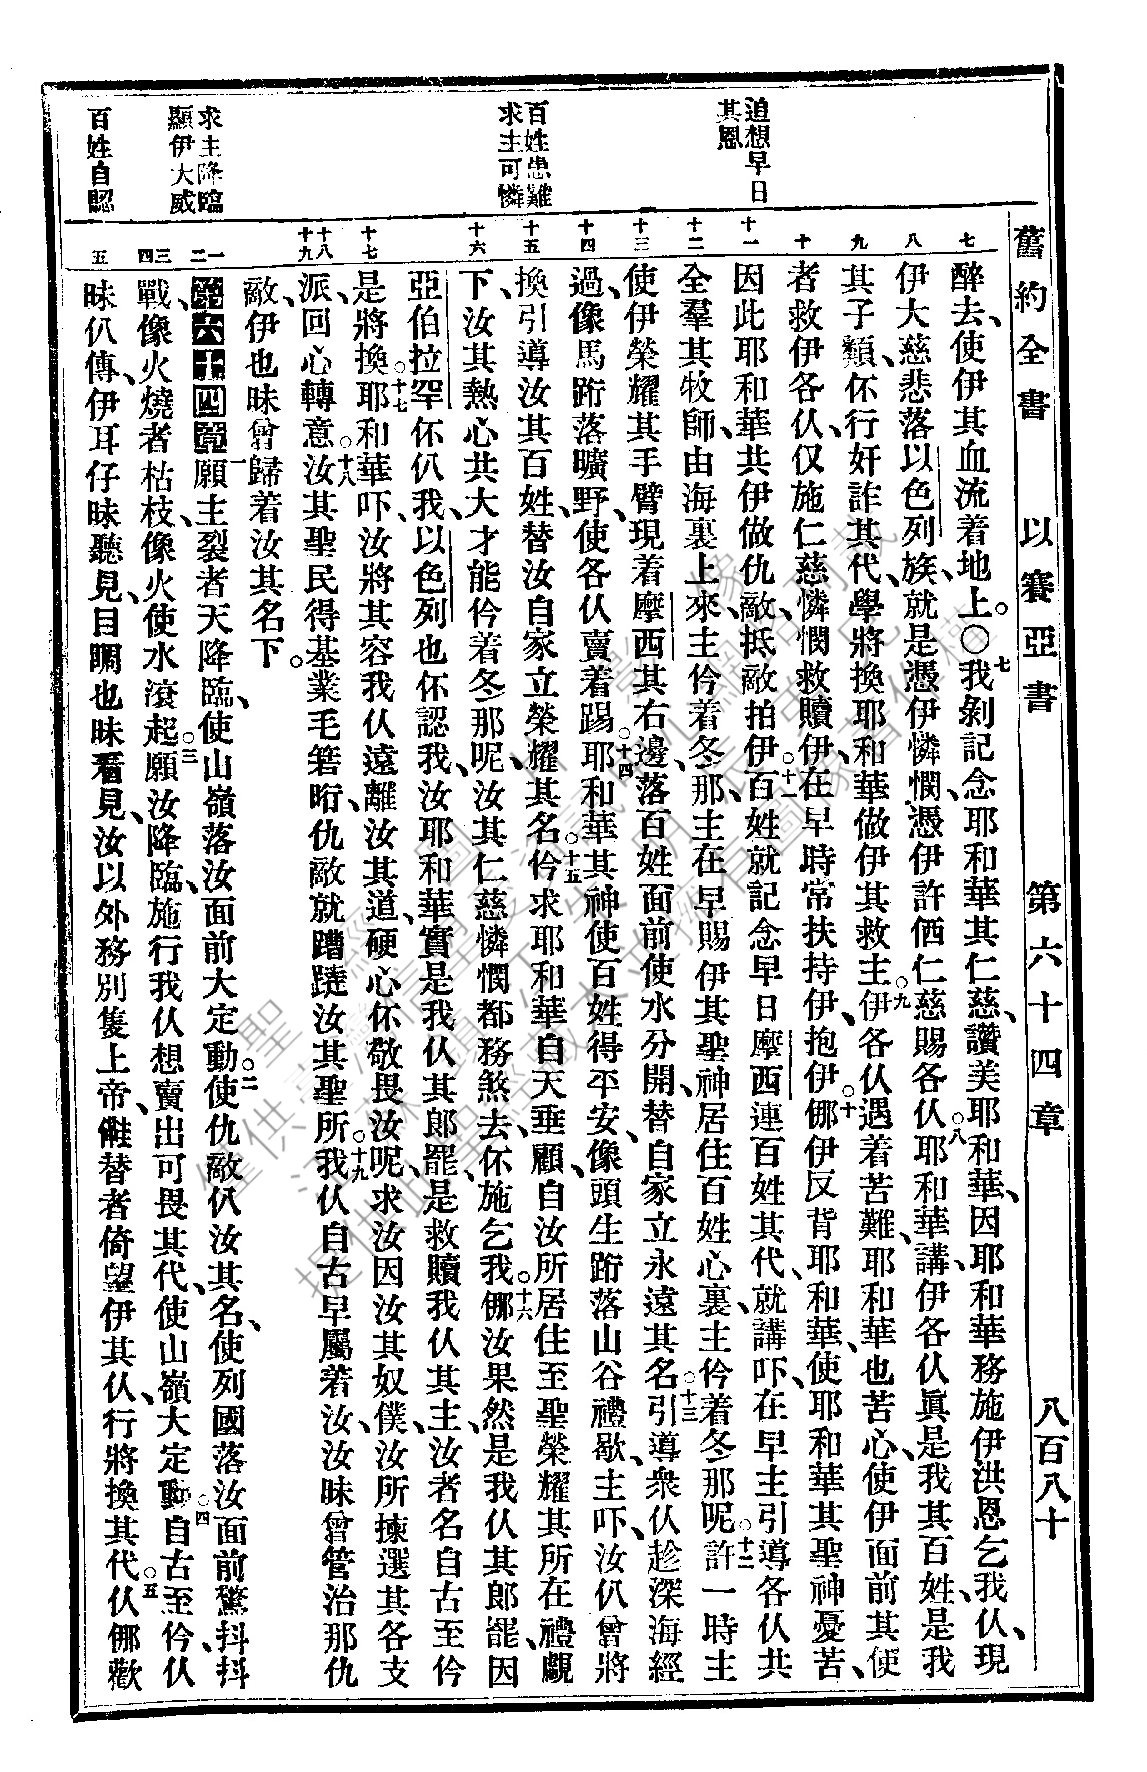 舊約全書 以賽亞書 第六十四章 八百八十
追想早日其恩
百姓患難求主可憐
求主降臨顯伊大威
百姓自認
七 八 九 十 十一 十二 十三 十四 十五 十六 十七 十八 十九 一二 三四 五
醉去、使伊其血流着地上。○七我剝記念耶和華其仁慈、讚美耶和華、因耶和華務施伊洪恩乞我仈、現
伊大慈悲落以色列族、就是憑伊憐憫、憑伊許価仁慈賜各仈。八耶和華講、伊各仈眞是我其百姓、是我
其子類、伓行奸詐其代、學將換耶和華做伊其救主。九伊各仈遇着苦難、耶和華也苦心、使伊面前其使
者救伊各仈、仅施仁慈憐憫救贖伊、在早時常扶持伊、抱伊。十㑚伊反背耶和華、使耶和華其聖神憂苦、
因此耶和華共伊做仇敵、抵敵拍伊。十一百姓就記念早日摩西連百姓其代、就講吓、在早主引導各仈共
全羣其牧師、由海裏上來、主伱着冬那、主在早賜伊其聖神居住百姓心裏、主伱着冬那呢。十二許一時主
使伊榮耀其手臂現着摩西其右邊、落百姓面前使水分開、替自家立永遠其名。十三引導衆仈趁深海經
過、像馬跨落曠野、使各仈賣着踢。十四耶和華其神使百姓得平安、像頭生跨落山谷禮歇、主吓、汝仈曾將
換引導汝其百姓、替汝自家立榮耀其名。十五伱求耶和華自天垂顧、自汝所居住至聖榮耀其所在禮覷
下、汝其熱心共大才能伱着冬那呢、汝其仁慈憐憫都務煞去、伓施乞我。十六㑚汝果然是我仈其郎罷、因
亞伯拉罕伓仈我、以色列也伓認我、汝耶和華實是我仈其郎罷、是救贖我仈其主、汝者名自古至伱
是將換。十七耶和華吓、汝將其容我仈遠離汝其道、硬心伓敬畏汝呢、求汝因汝其奴僕、汝所揀選其各支
派、回心轉意。十八汝其聖民得基業毛箬晍、仇敵就蹧蹺汝其聖所。十九我仈自古早屬着汝、汝昧曾管治那仇
敵、伊也昧曾歸着汝其名下。
第六十四章一願主裂者天降臨、使山嶺落汝面前大定動。二使仇敵仈汝其名、使列國落汝面前驚抖抖
戰、像火燒者枯枝、像火使水滾起。三願汝降臨、施行我仈想賣出可畏其代、使山嶺大定動。四自古至伱仈
昧仈傳、伊耳仔昧聽見、目睭也昧看見、汝以外務別隻上帝、僅替者倚望伊其仈、行將換其代。五仈㑚歡